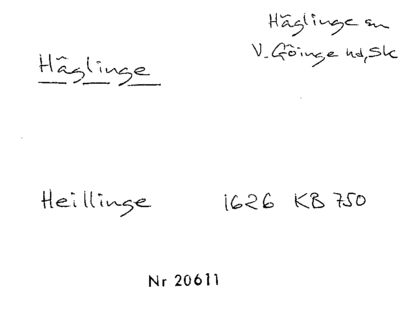 Häglinge sn
V. Göinge hd, Sk
Häglinge
Heillinge 1626 KB 750
Nr 20611